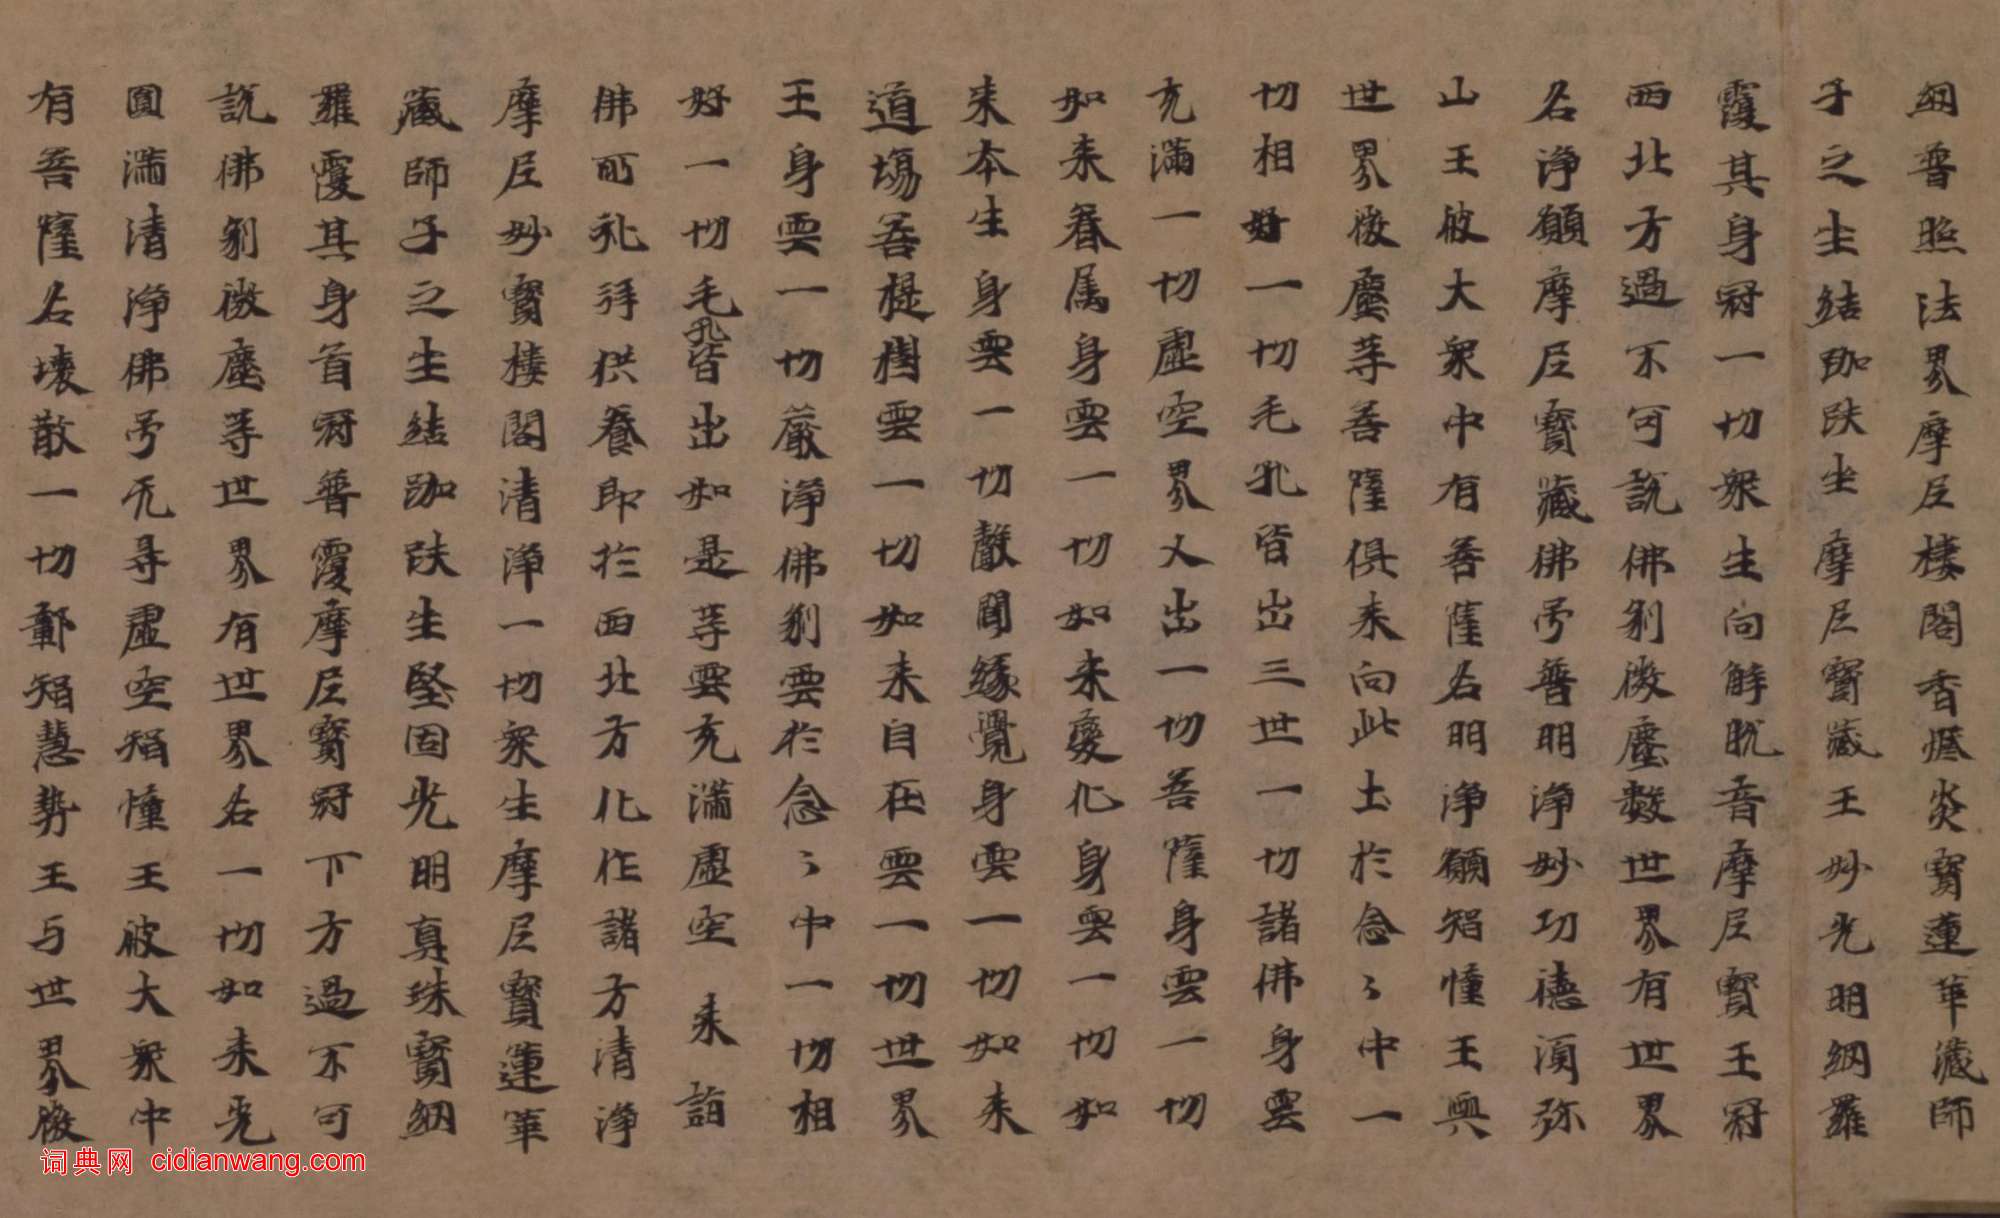 網普照法界摩尼樓閣香燈炎寶蓮華藏師
子之坐結跏趺坐摩尼寶藏王妙光明網羅
覆其身冠一切衆生向解脫音摩尼寶王冠
西北方過不可說佛刹微塵數世界有世界
名淨願摩尼寶藏佛号普明淨妙功德湏弥
山王彼大衆中有菩薩名明淨願智憧王與
世界微塵等菩薩俱来向此土於念〻中一
切相好一切毛孔皆出三世一切諸佛身雲
充滿一切虛空界又出一切菩薩身雲一切
如来眷属身雲一切如来變化身雲一切如
来本生身雲一切聲聞緣覺身雲一切如来
道場菩提樹雲一切如来自在雲一切世界
王身雲一切嚴淨佛刹雲於念〻中一切相
好一切毛孔皆出如是等雲充滿虛空来詣
佛所礼拜供養即於西北方化作諸方清淨
摩尼妙寶樓閣清淨一切衆生摩尼寶蓮華
藏師子之坐結跏趺坐堅固光明真珠寶網
羅覆其身首冠普覆摩尼寶冠下方過不可
說佛刹微塵等世界有世界名一切如来光
圓滿清淨佛号无㝵虛空智憧王彼大衆中
有菩薩名壞散一切鄣智慧勢王与世界微
词典网 cidianwang.com